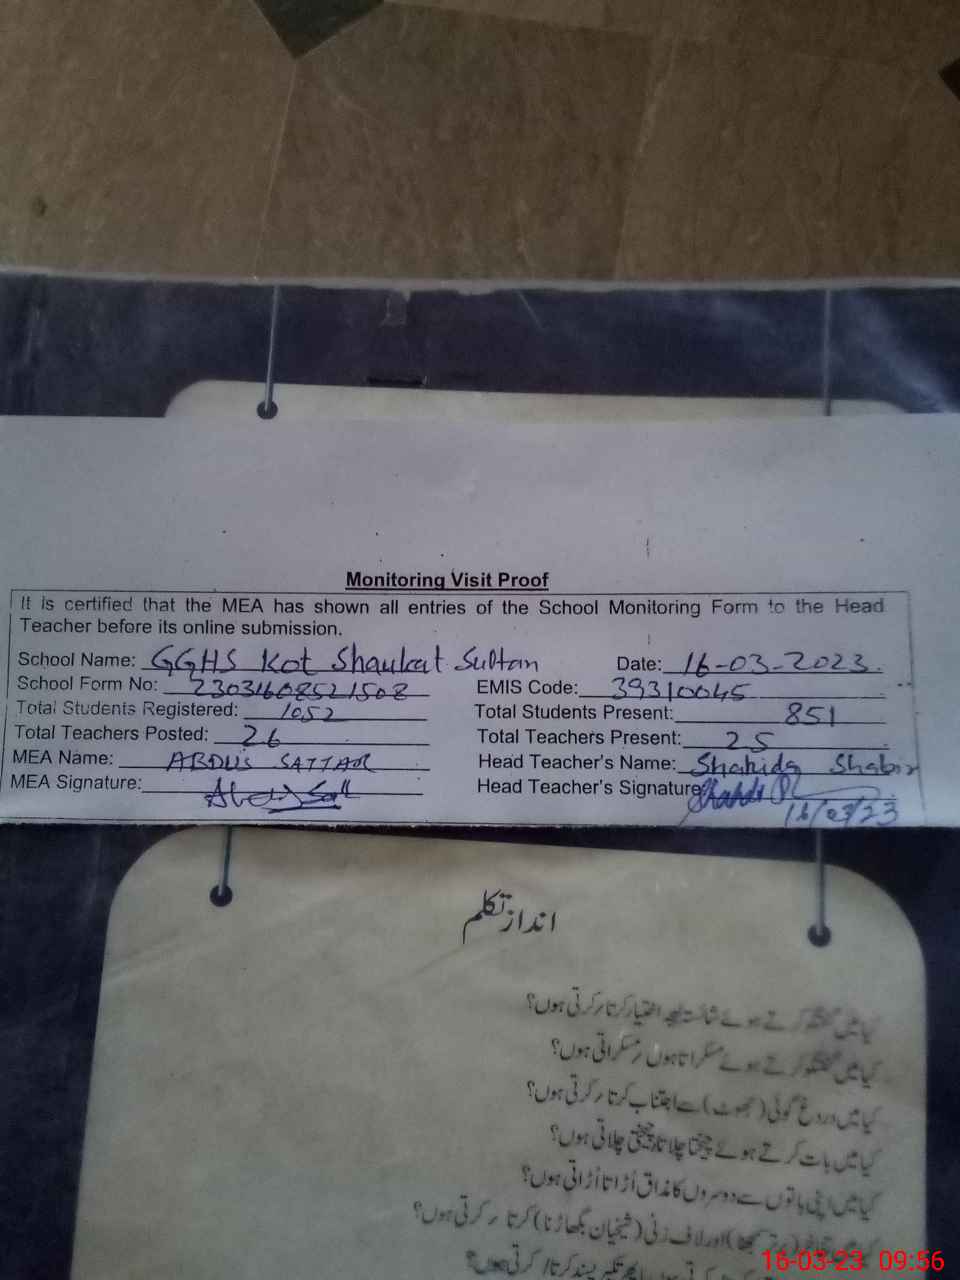 Monitoring Visit Proof
It is certified that the MEA has shown all entries of the School Monitoring Form to the Head
Teacher before its online submission.
School Name: GGHS Kot Shaukat Sultan Date: 16-03-2023.
School Form No: 23031608521508 EMIS Code: 39310045
Total Students Registered: 1052 Total Students Present: 851
Total Teachers Posted: 26 Total Teachers Present: 25
MEA Name: ABDUS SATTAR Head Teacher's Name: Shahida Shabir
MEA Signature: Head Teacher's Signature
16/03/23
انداز تکلم
کیا میں گفتگو کرتے ہوئے شائستہ لہجہ اختیار کرتا رکرتی ہوں؟
کیا میں گفتگو کرتے ہوئے مسکراتا ہوں رمسکراتی ہوں؟
کیا میں دروغ گوئی (جھوٹ) سے اجتناب کرتا رکرتی ہوں؟
کیا میں بات کرتے ہوئے چیختا چلاتا رچیختی چلاتی ہوں؟
کیا میں اپنی باتوں سے دوسروں کا مذاق اُڑاتا اُڑاتی ہوں؟
اور لاف زنی (شیخیاں بگھارنا) کرتا رکرتی ہوں؟
پسند کرتا رکرتی ہوں؟
16-03-23 09:56